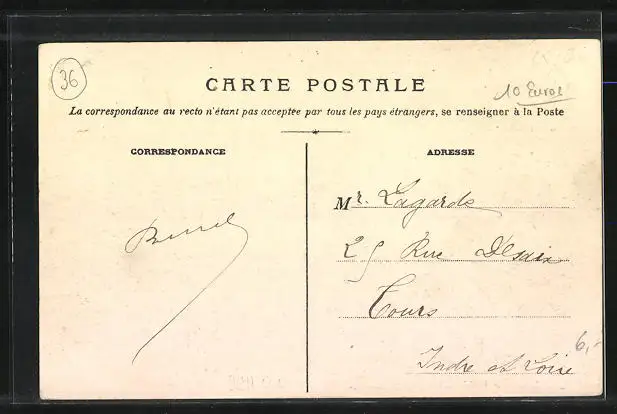 36
CARTE POSTALE
10 Euros
La correspondance au recto n'étant pas acceptée par tous les pays étrangers, se renseigner à la Poste
CORRESPONDANCE
ADRESSE
Mr. Lagarde
25 Rue Desaix
Tours
6,-
Indre et Loire